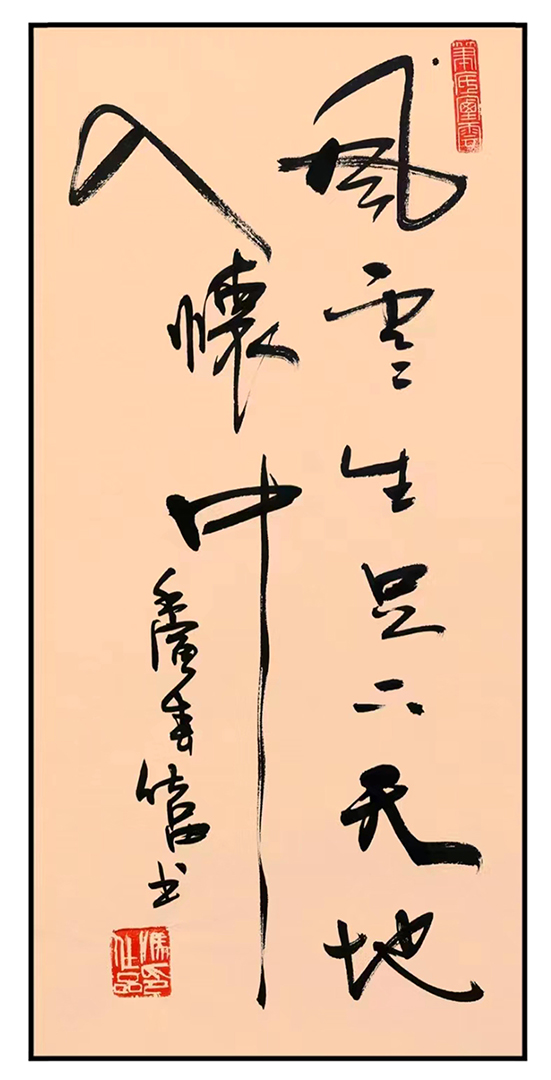 風雲生足下天地
入懷中
寅春
书